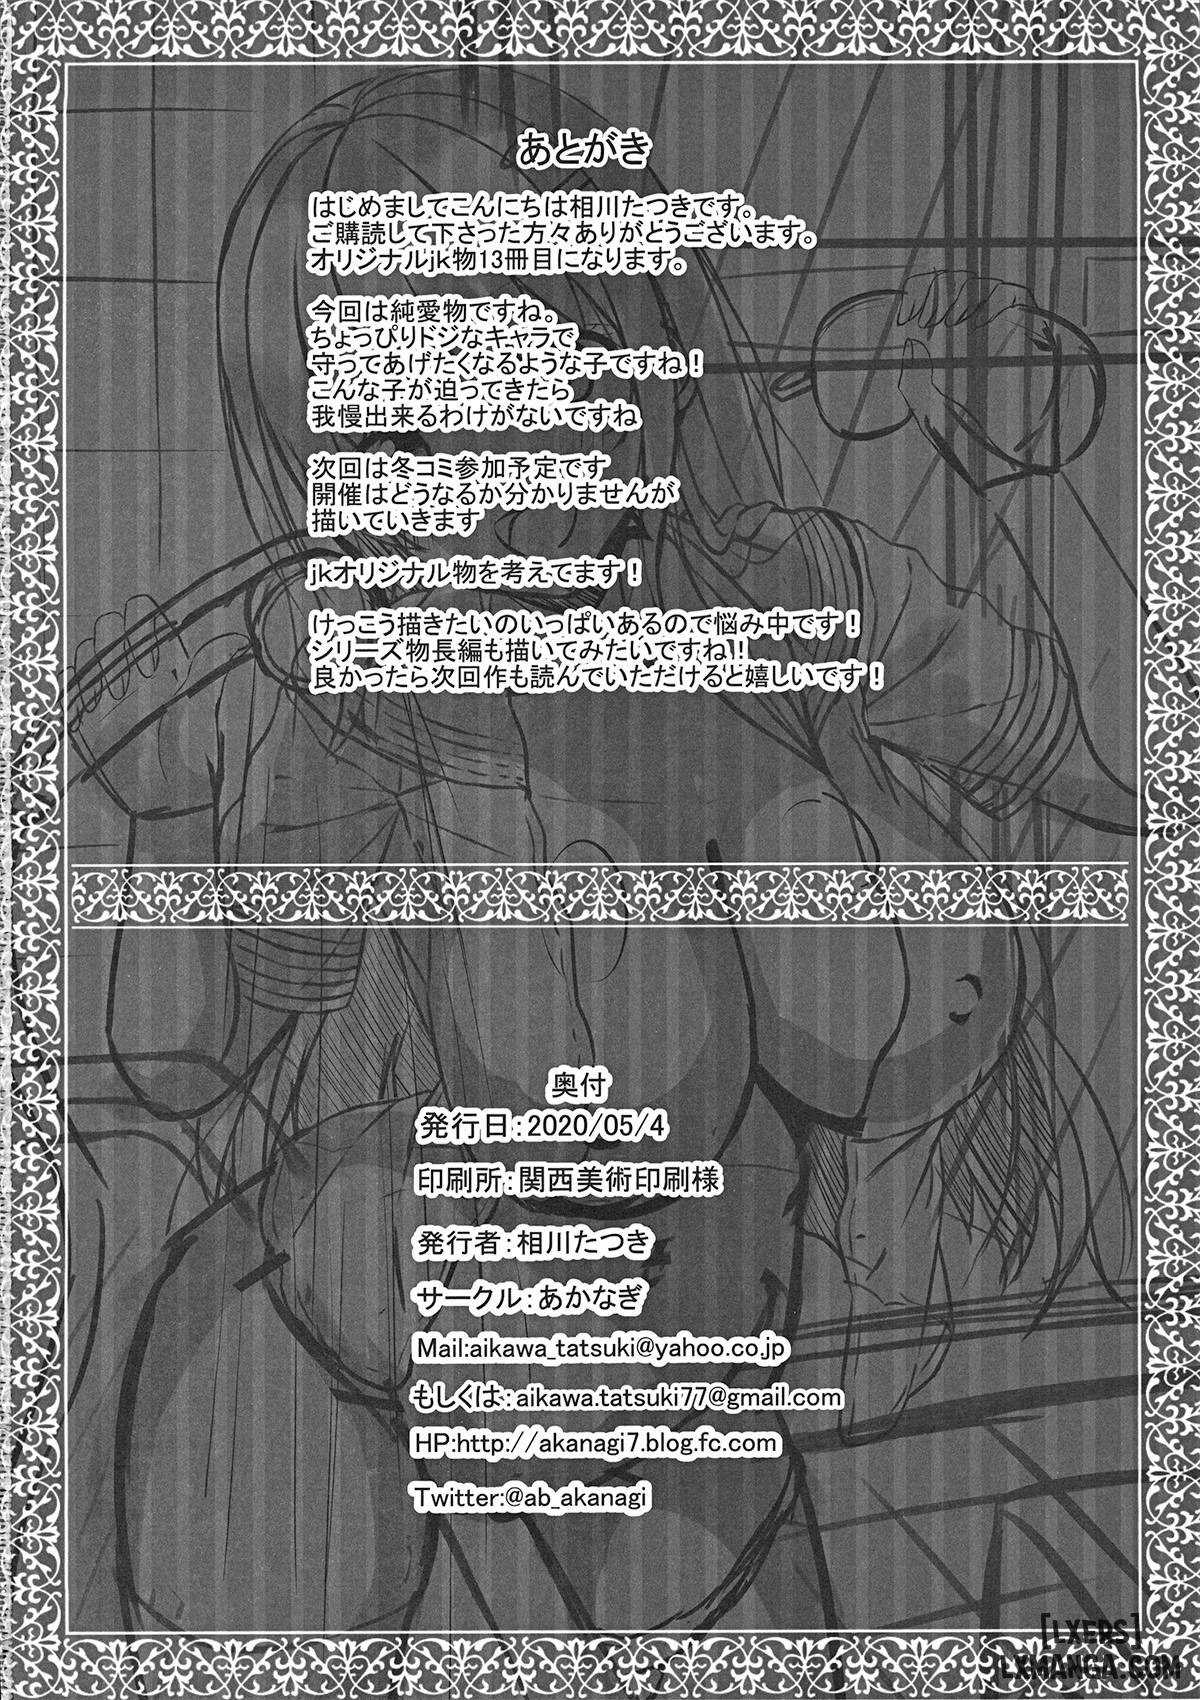 あとがき
はじめましてこんにちは相川たつきです。
ご購読して下さった方々ありがとうございます。
オリジナルjk物13冊目になります。
今回は純愛物ですね。
ちょっぴりドジなキャラで
守ってあげたくなるような子ですね！
こんな子が迫ってきたら
我慢出来るわけがないですね
次回は冬コミ参加予定です
開催はどうなるか分かりませんが
描いていきます
jkオリジナル物を考えてます！
けっこう描きたいのいっぱいあるので悩み中です！
シリーズ物長編も描いてみたいですね！
良かったら次回作も読んでいただけると嬉しいです！
奥付
発行日：2020/05/4
印刷所：関西美術印刷様
発行者：相川たつき
サークル：あかなぎ
Mail:aikawa_tatsuki@yahoo.co.jp
もしくは：aikawa.tatsuki77@gmail.com
HP:http://akanagi7.blog.fc.com
Twitter:@ab_akanagi
[LXERS]
LXMANGA.COM